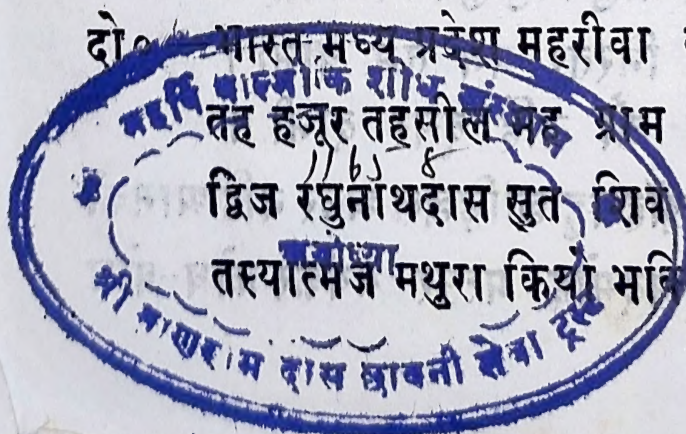 दो० भारत मध्य प्रदेश महरीवा
तह हजूर तहसील मह ग्राम
द्विज रघुनाथदास सुत शिव
तस्यात्मज मथुरा कियो भक्ति
महर्षि वाल्मीकि शोध संस्थान
अयोध्या
श्री मणिराम दास छावनी सेवा ट्रस्ट